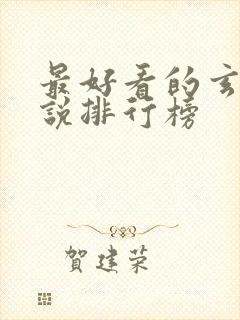 最好看的玄
說排行榜
賀建荣